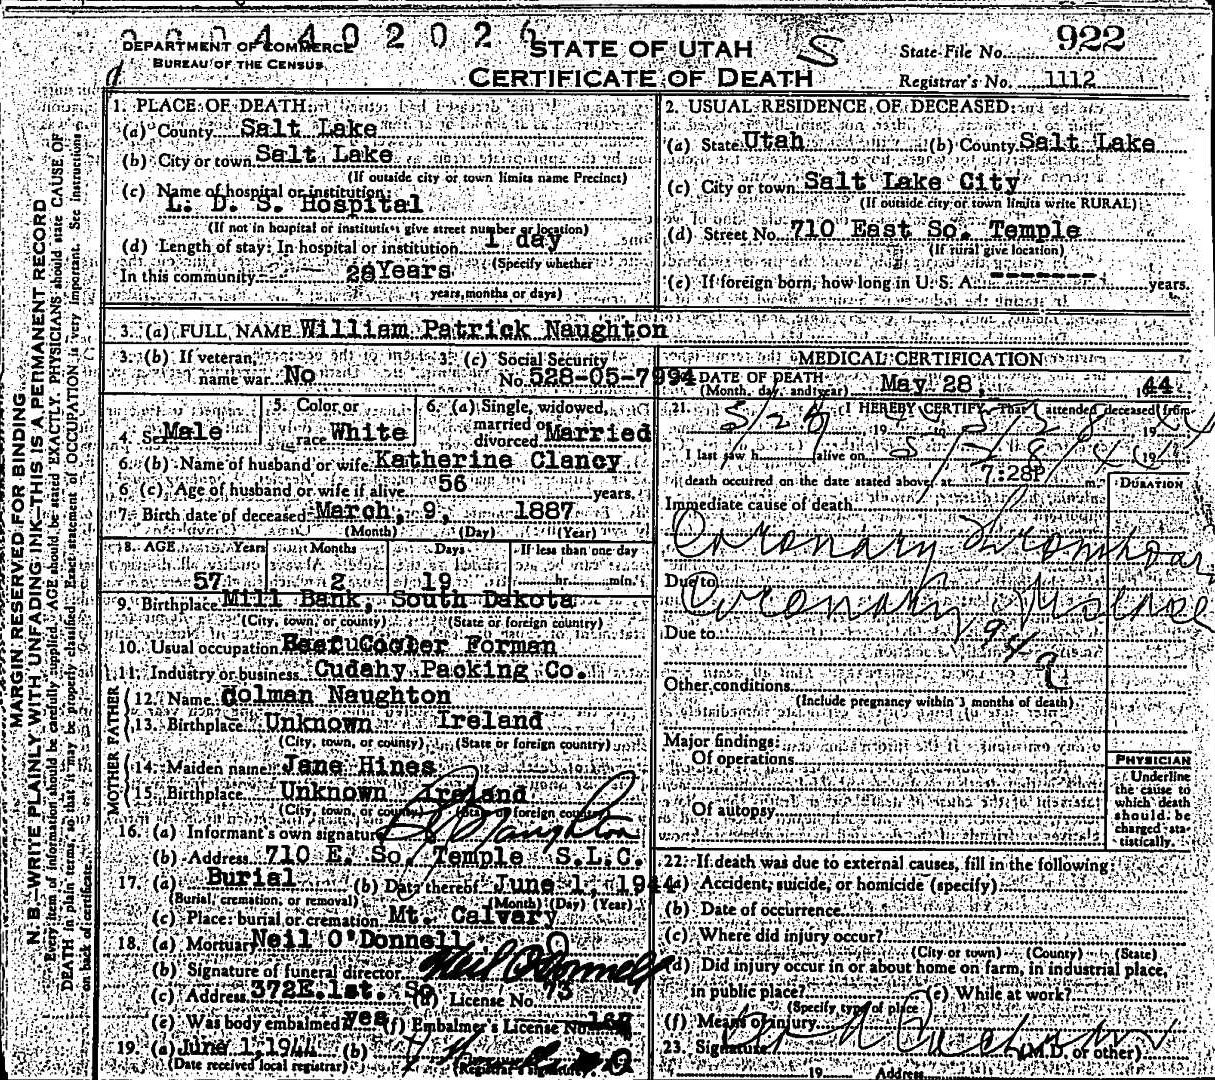 0004402026
DEPARTMENT OF COMMERCE
BUREAU OF THE CENSUS
STATE OF UTAH
CERTIFICATE OF DEATH
S
State File No. 922
Registrar's No. 1112
MARGIN RESERVED FOR BINDING
N. B.—WRITE PLAINLY WITH UNFADING INK—THIS IS A PERMANENT RECORD
Every item of information should be carefully supplied. AGE should be stated EXACTLY. PHYSICIANS should state CAUSE OF
DEATH in plain terms, so that it may be properly classified. Exact statement of OCCUPATION is very important. See instructions
on back of certificate.
1. PLACE OF DEATH:
(a) County Salt Lake
(b) City or town Salt Lake
(If outside city or town limits name Precinct)
(c) Name of hospital or institution:
L. D. S. Hospital
(If not in hospital or institution give street number or location)
(d) Length of stay: In hospital or institution 1 day
(Specify whether
In this community 28 Years
years, months or days)
2. USUAL RESIDENCE OF DECEASED:
(a) State Utah (b) County Salt Lake
(c) City or town Salt Lake City
(If outside city or town limits write RURAL)
(d) Street No. 710 East So. Temple
(If rural give location)
(e) If foreign born, how long in U. S. A. ------- years.
3. (a) FULL NAME William Patrick Naughton
3. (b) If veteran, name war No
3 (c) Social Security No. 528-05-7994
4. Sex Male
5. Color or race White
6. (a) Single, widowed, married or divorced Married
6. (b) Name of husband or wife Katherine Clancy
6 (c) Age of husband or wife if alive 56 years.
7. Birth date of deceased March, 9, 1887
(Month) (Day) (Year)
8. AGE Years Months Days If less than one day
57 2 19 hr. min.
9. Birthplace Mill Bank, South Dakota
(City, town, or county) (State or foreign country)
10. Usual occupation Beef Cooler Forman
11. Industry or business Cudahy Packing Co.
FATHER
12. Name Colman Naughton
13. Birthplace Unknown Ireland
(City, town, or county) (State or foreign country)
MOTHER
14. Maiden name Jane Hines
15. Birthplace Unknown Ireland
(City, town, or county) (State or foreign country)
16. (a) Informant's own signature Naughton
(b) Address 710 E. So. Temple S.L.C.
17. (a) Burial (b) Date thereof June 1, 1944
(Burial, cremation, or removal) (Month) (Day) (Year)
(c) Place: burial or cremation Mt. Calvary
18. (a) Mortuary Neil O'Donnell
(b) Signature of funeral director Neil O'Donnell
(c) Address 372E.1st. So (d) License No. 73
(e) Was body embalmed? yes (f) Embalmer's License No.
19. (a) June 1, 1944 (b)
(Date received local registrar) (Registrar's signature)
MEDICAL CERTIFICATION
20. DATE OF DEATH
(Month, day, and year) May 28, 44
21. I HEREBY CERTIFY, That I attended deceased from
5/28 19 to 5/28 19 44
I last saw h alive on 5/28/44 19
death occurred on the date stated above, at 7:28P m.
DURATION
Immediate cause of death
Coronary Thrombosis
Due to
Coronary Disease
Due to
94a
Other conditions
(Include pregnancy within 3 months of death)
Major findings:
Of operations
Of autopsy
PHYSICIAN
Underline
the cause to
which death
should be
charged statistically.
22. If death was due to external causes, fill in the following:
(a) Accident, suicide, or homicide (specify)
(b) Date of occurrence
(c) Where did injury occur?
(City or town) (County) (State)
(d) Did injury occur in or about home on farm, in industrial place,
in public place? (e) While at work?
(Specify type of place
(f) Means of injury
23. Signature (M.D. or other)
19 Address